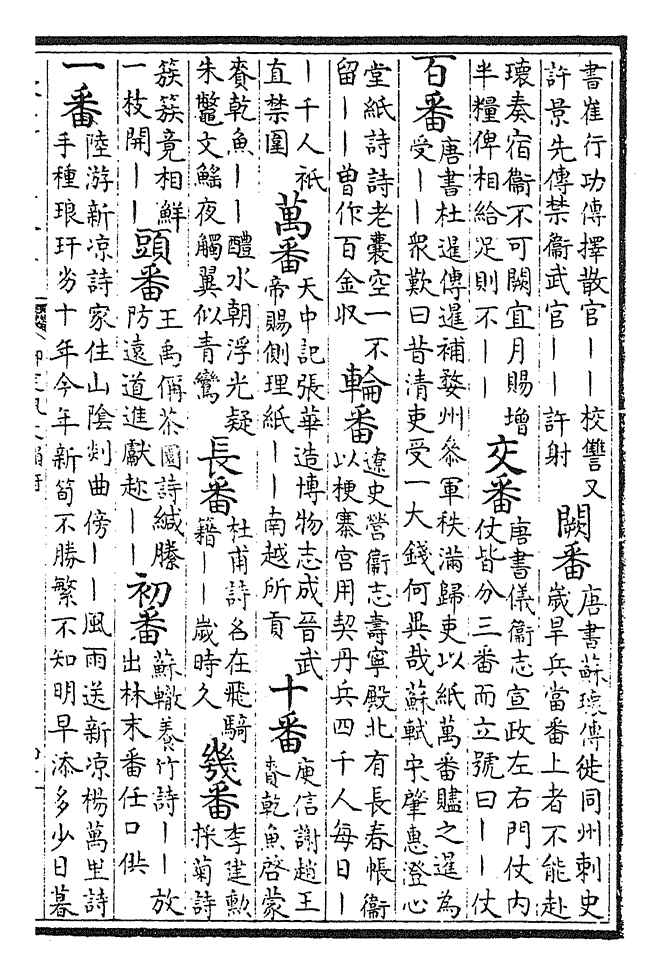 書崔行功傳擇散官丨丨校讐又
許景先傳禁衞武官丨丨許射
闕番
唐書蘇瓌傳徙同州刺史
歲旱兵當番上者不能赴
瓌奏宿衞不可闕宜月賜增
半糧俾相給足則不丨丨
交番
唐書儀衞志宣政左右門仗内
仗皆分三番而立號曰丨丨仗
百番
唐書杜暹傳暹補婺州叅軍秩滿歸吏以紙萬番贐之暹為
受丨丨衆歎曰昔清吏受一大錢何異哉蘇軾宋肇惠澄心
堂紙詩詩老囊空一不
留丨丨曽作百金収
輪番
遼史營衞志壽寧殿北有長春帳衞
以梗寨宫用契丹兵四千人每日丨
丨千人祇
直禁圍
萬番
天中記張華造博物志成晉武
帝賜側理紙丨丨南越所貢
十番
庾信謝趙王
賚乾魚啓蒙
賚乾魚丨丨醴水朝浮光疑
朱鼈文鰩夜觸翼似青鸞
長番
杜甫詩名在飛騎
籍丨丨歲時久
幾番
李建勲
採菊詩
簇簇竟相鮮
一枝開丨丨
頭番
王禹偁茶園詩緘縢
防遠道進獻趂丨丨
初番
蘇轍養竹詩丨丨放
出林末番任口供
一番
陸游新凉詩家住山陰剡曲傍丨丨風雨送新凉楊萬里詩
手種琅玕劣十年今年新筍不勝繁不知明早添多少日暮